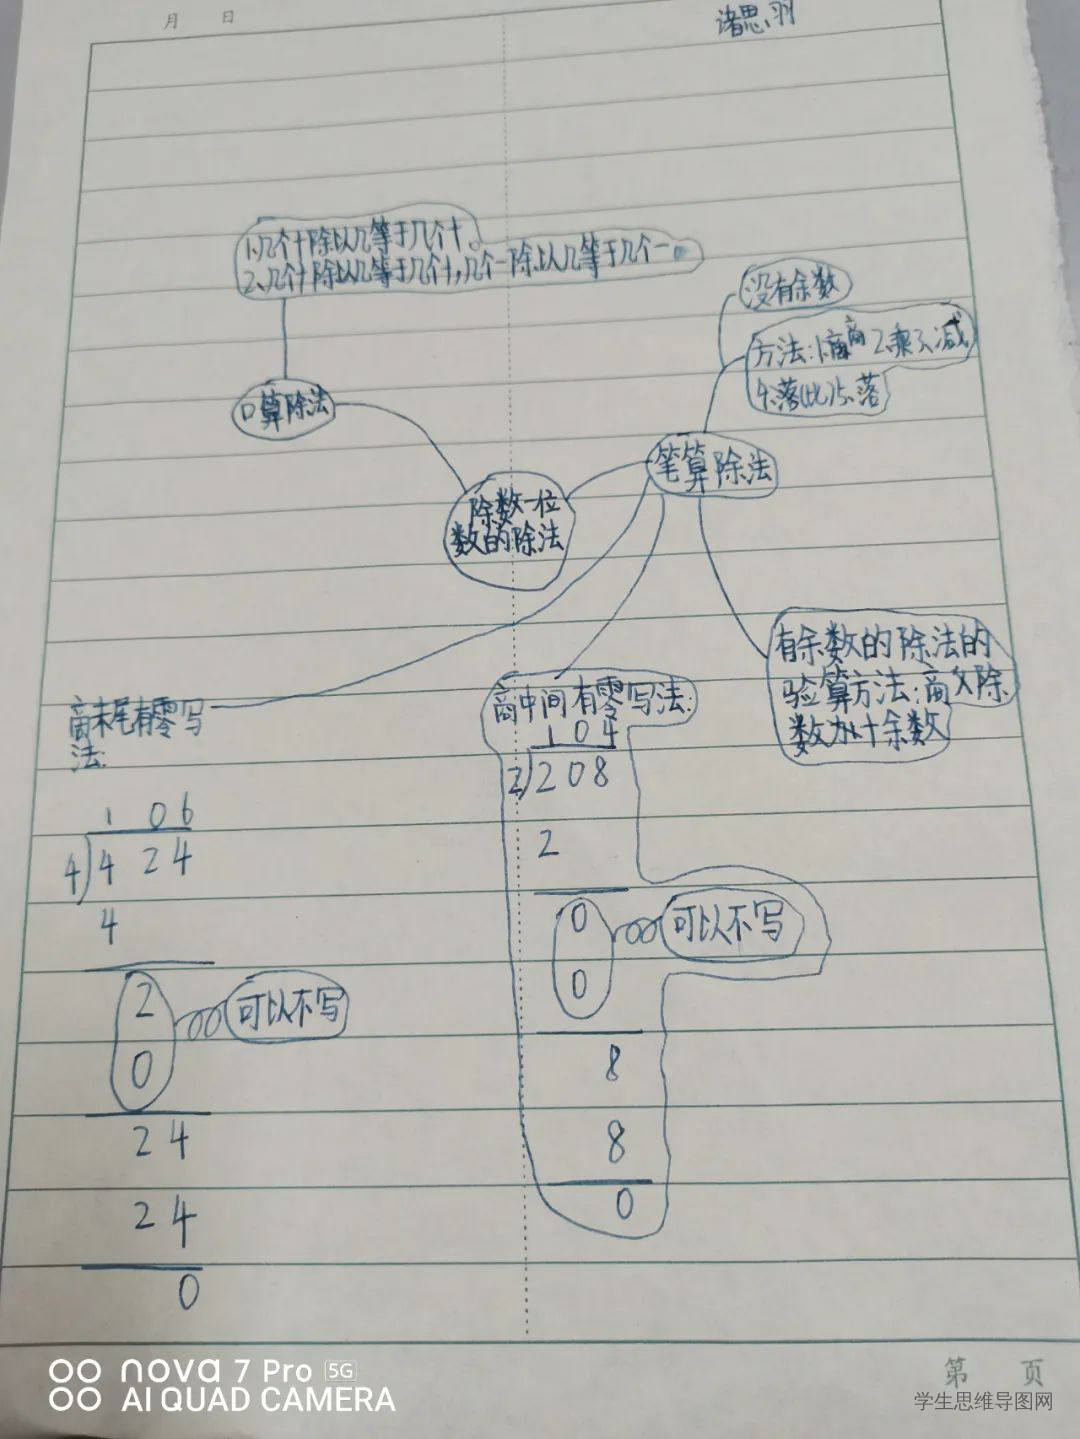 月 日
诸思羽
1、几个十除以几等于几个十。
2、几个十除以几等于几个十,几个一除以几等于几个一。
没有余数
方法:1、商 2、乘 3、减
4、落(比)5、落
口算除法
笔算除法
除数一位
数的除法
有余数的除法的
验算方法:商乂除
数加十余数
商末尾有零写
法:
商中间有零写法:
1 0 4
2 2 0 8
2
0
可以不写
0
8
8
0
1 0 6
4 4 2 4
4
2
可以不写
0
2 4
2 4
0
nova 7 Pro 5G
AI QUAD CAMERA
第 页
学生思维导图网